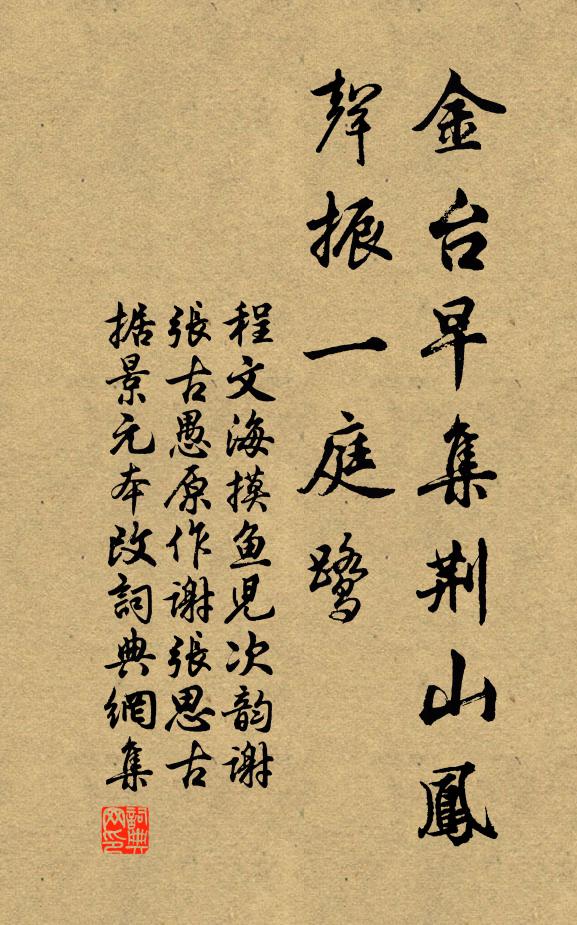 金台早集荆山鳳
聲振一庭鷺
程文海摸魚児次韵謝
張古愚原作謝張思古
据景元本改詞典網集
詞典
网印